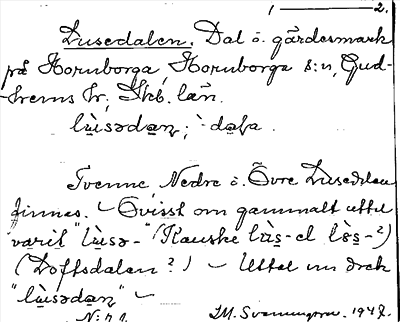 1 — 2.
Lusedalen. Dal o. gärdesmark
på Hornborga, Hornborga s:n, Gud-
hems hr, Skb. län.
lùsədan; -dafa.
Tvenne, Nedre o. Övre Lusedalen
finnes. – Ovisst om gammalt uttal
varit "lùsə-" (Kanske lùs-el lös-?)
(Loftsdalen?) – Uttal nu dock
"lùsədan" –
1947.